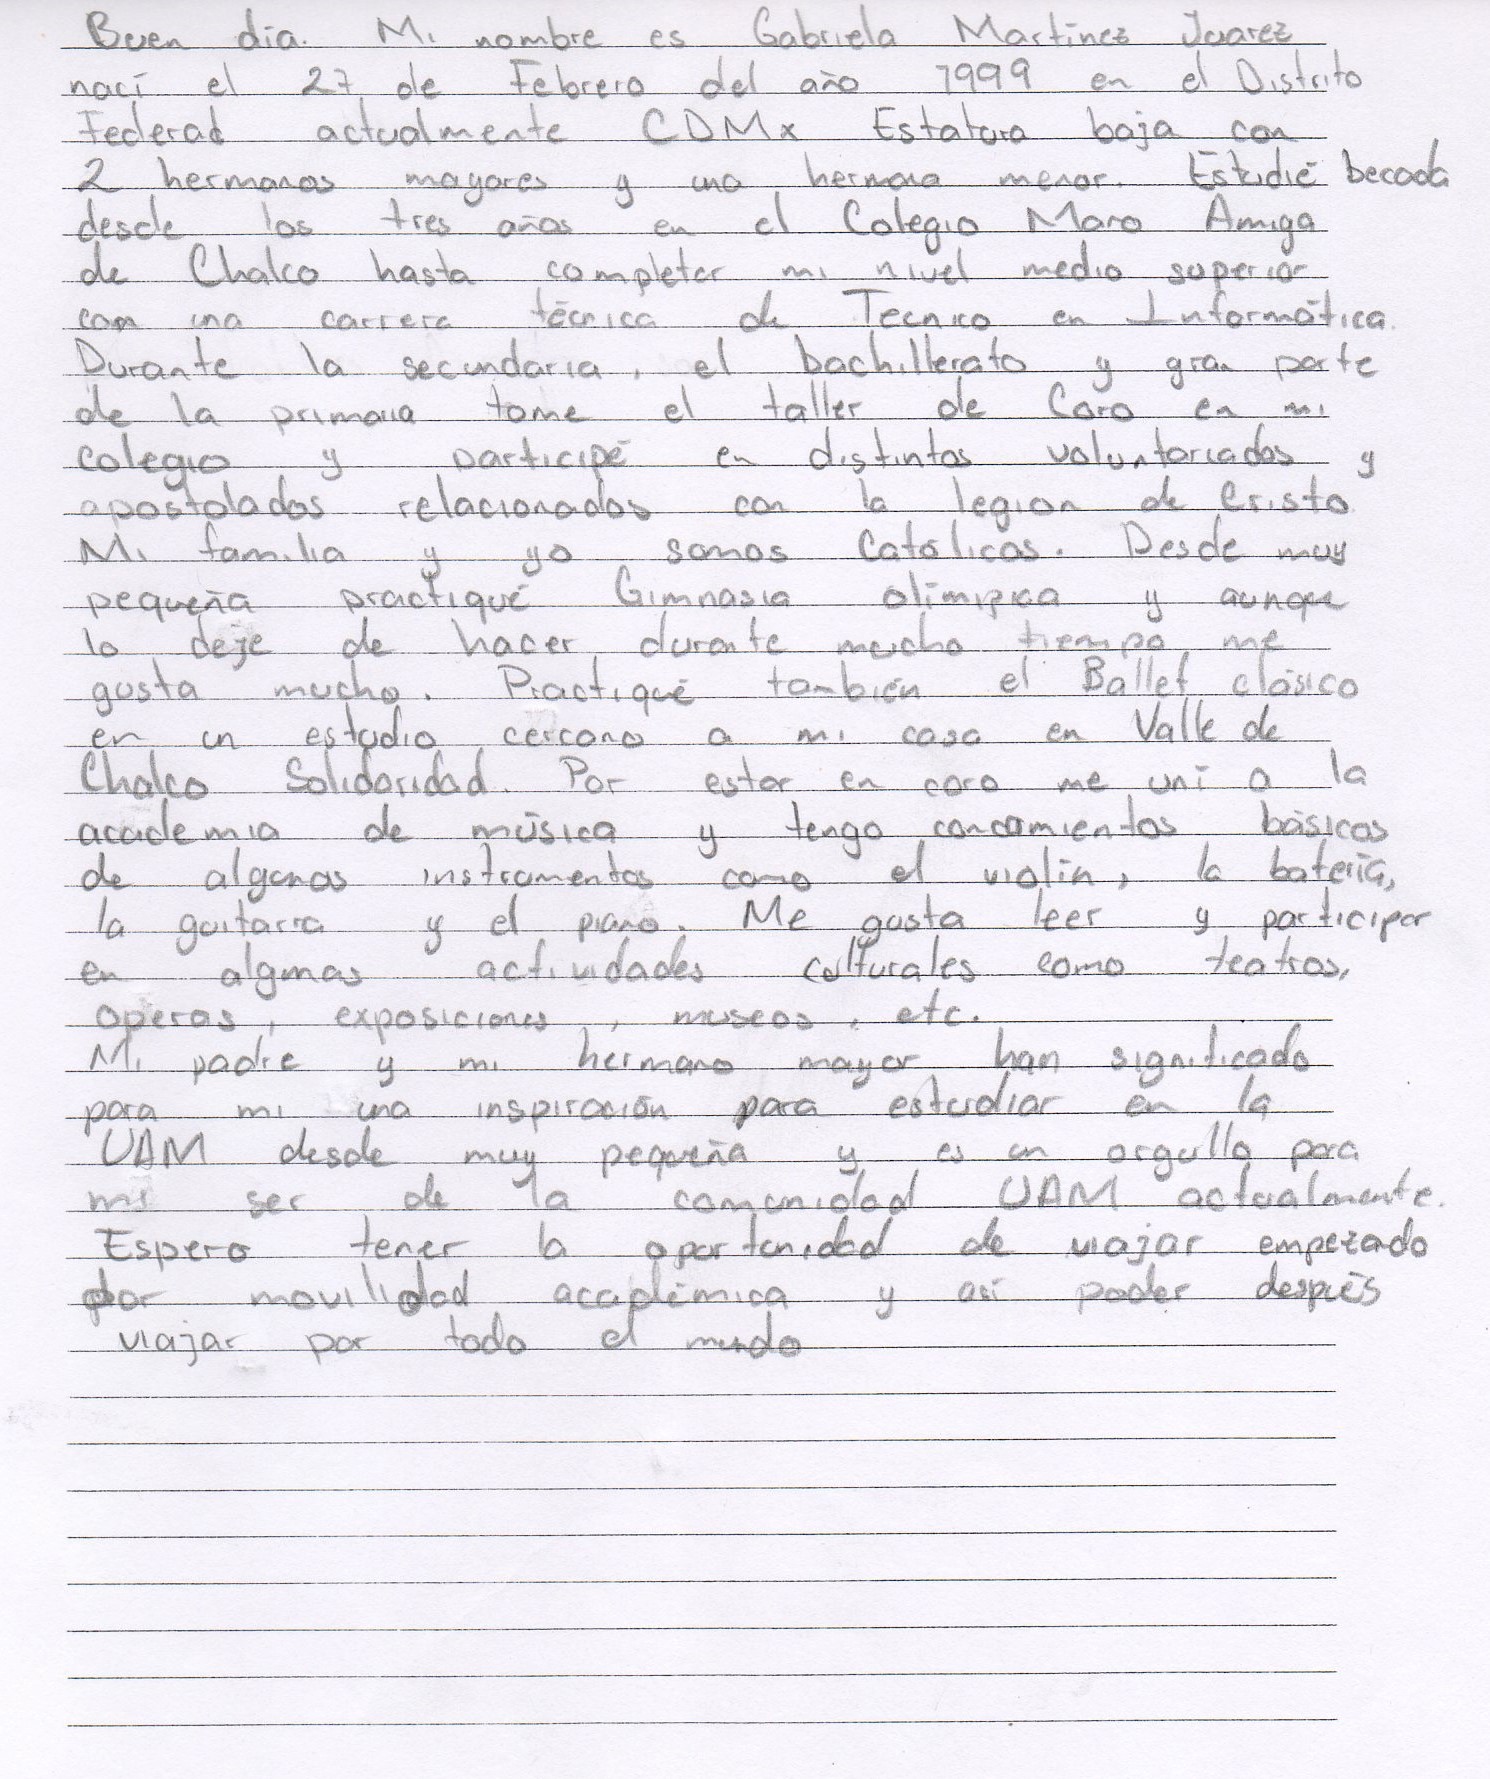 Buen día. Mi nombre es Gabriela Martínez Juarez
nací el 27 de Febrero del año 1999 en el Distrito
Federal actualmente CDMx Estatura baja con
2 hermanos mayores y una hermana menor. Estudié becada
desde los tres años en el Colegio Mano Amiga
de Chalco hasta completar mi nivel medio superior
con una carrera técnica de Tecnico en Informática.
Durante la secundaria, el bachillerato y gran parte
de la primaria tome el taller de Coro en mi
colegio y participé en distintos voluntariados y
apostolados relacionados con la legion de Cristo.
Mi familia y yo somos Católicos. Desde muy
pequeña practiqué Gimnasia olímipica y aunque
lo deje de hacer durante mucho tiempo me
gusta mucho. Practiqué también el Ballet clásico
en un estudio cercano a mi casa en Valle de
Chalco Solidaridad. Por estar en coro me uní a la
academia de música y tengo conocimientos básicos
de algunos instrumentos como el violín, la batería,
la guitarra y el piano. Me gusta leer y participar
en algunas actividades culturales como teatros,
operas, exposiciones, museos, etc.
Mi padre y mi hermano mayor han significado
para mi una inspiración para estudiar en la
UAM desde muy pequeña y es un orgullo para
mi ser de la comunidad UAM actualmente.
Espero tener la oportunidad de viajar empezado
por movilidad académica y así poder después
viajar por todo el mundo